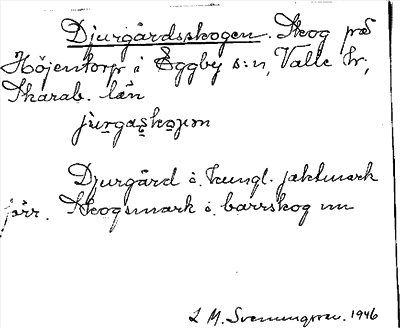 Djurgårdsskogen. Skog på
Höjentorp i Eggby s:n, Valle hr,
Skarab. län
jurgaskoɡən
Djurgård o. kungl. jaktmark
förr. Skogsmark o. barrskog nu
L M. Svenungsson. 1946